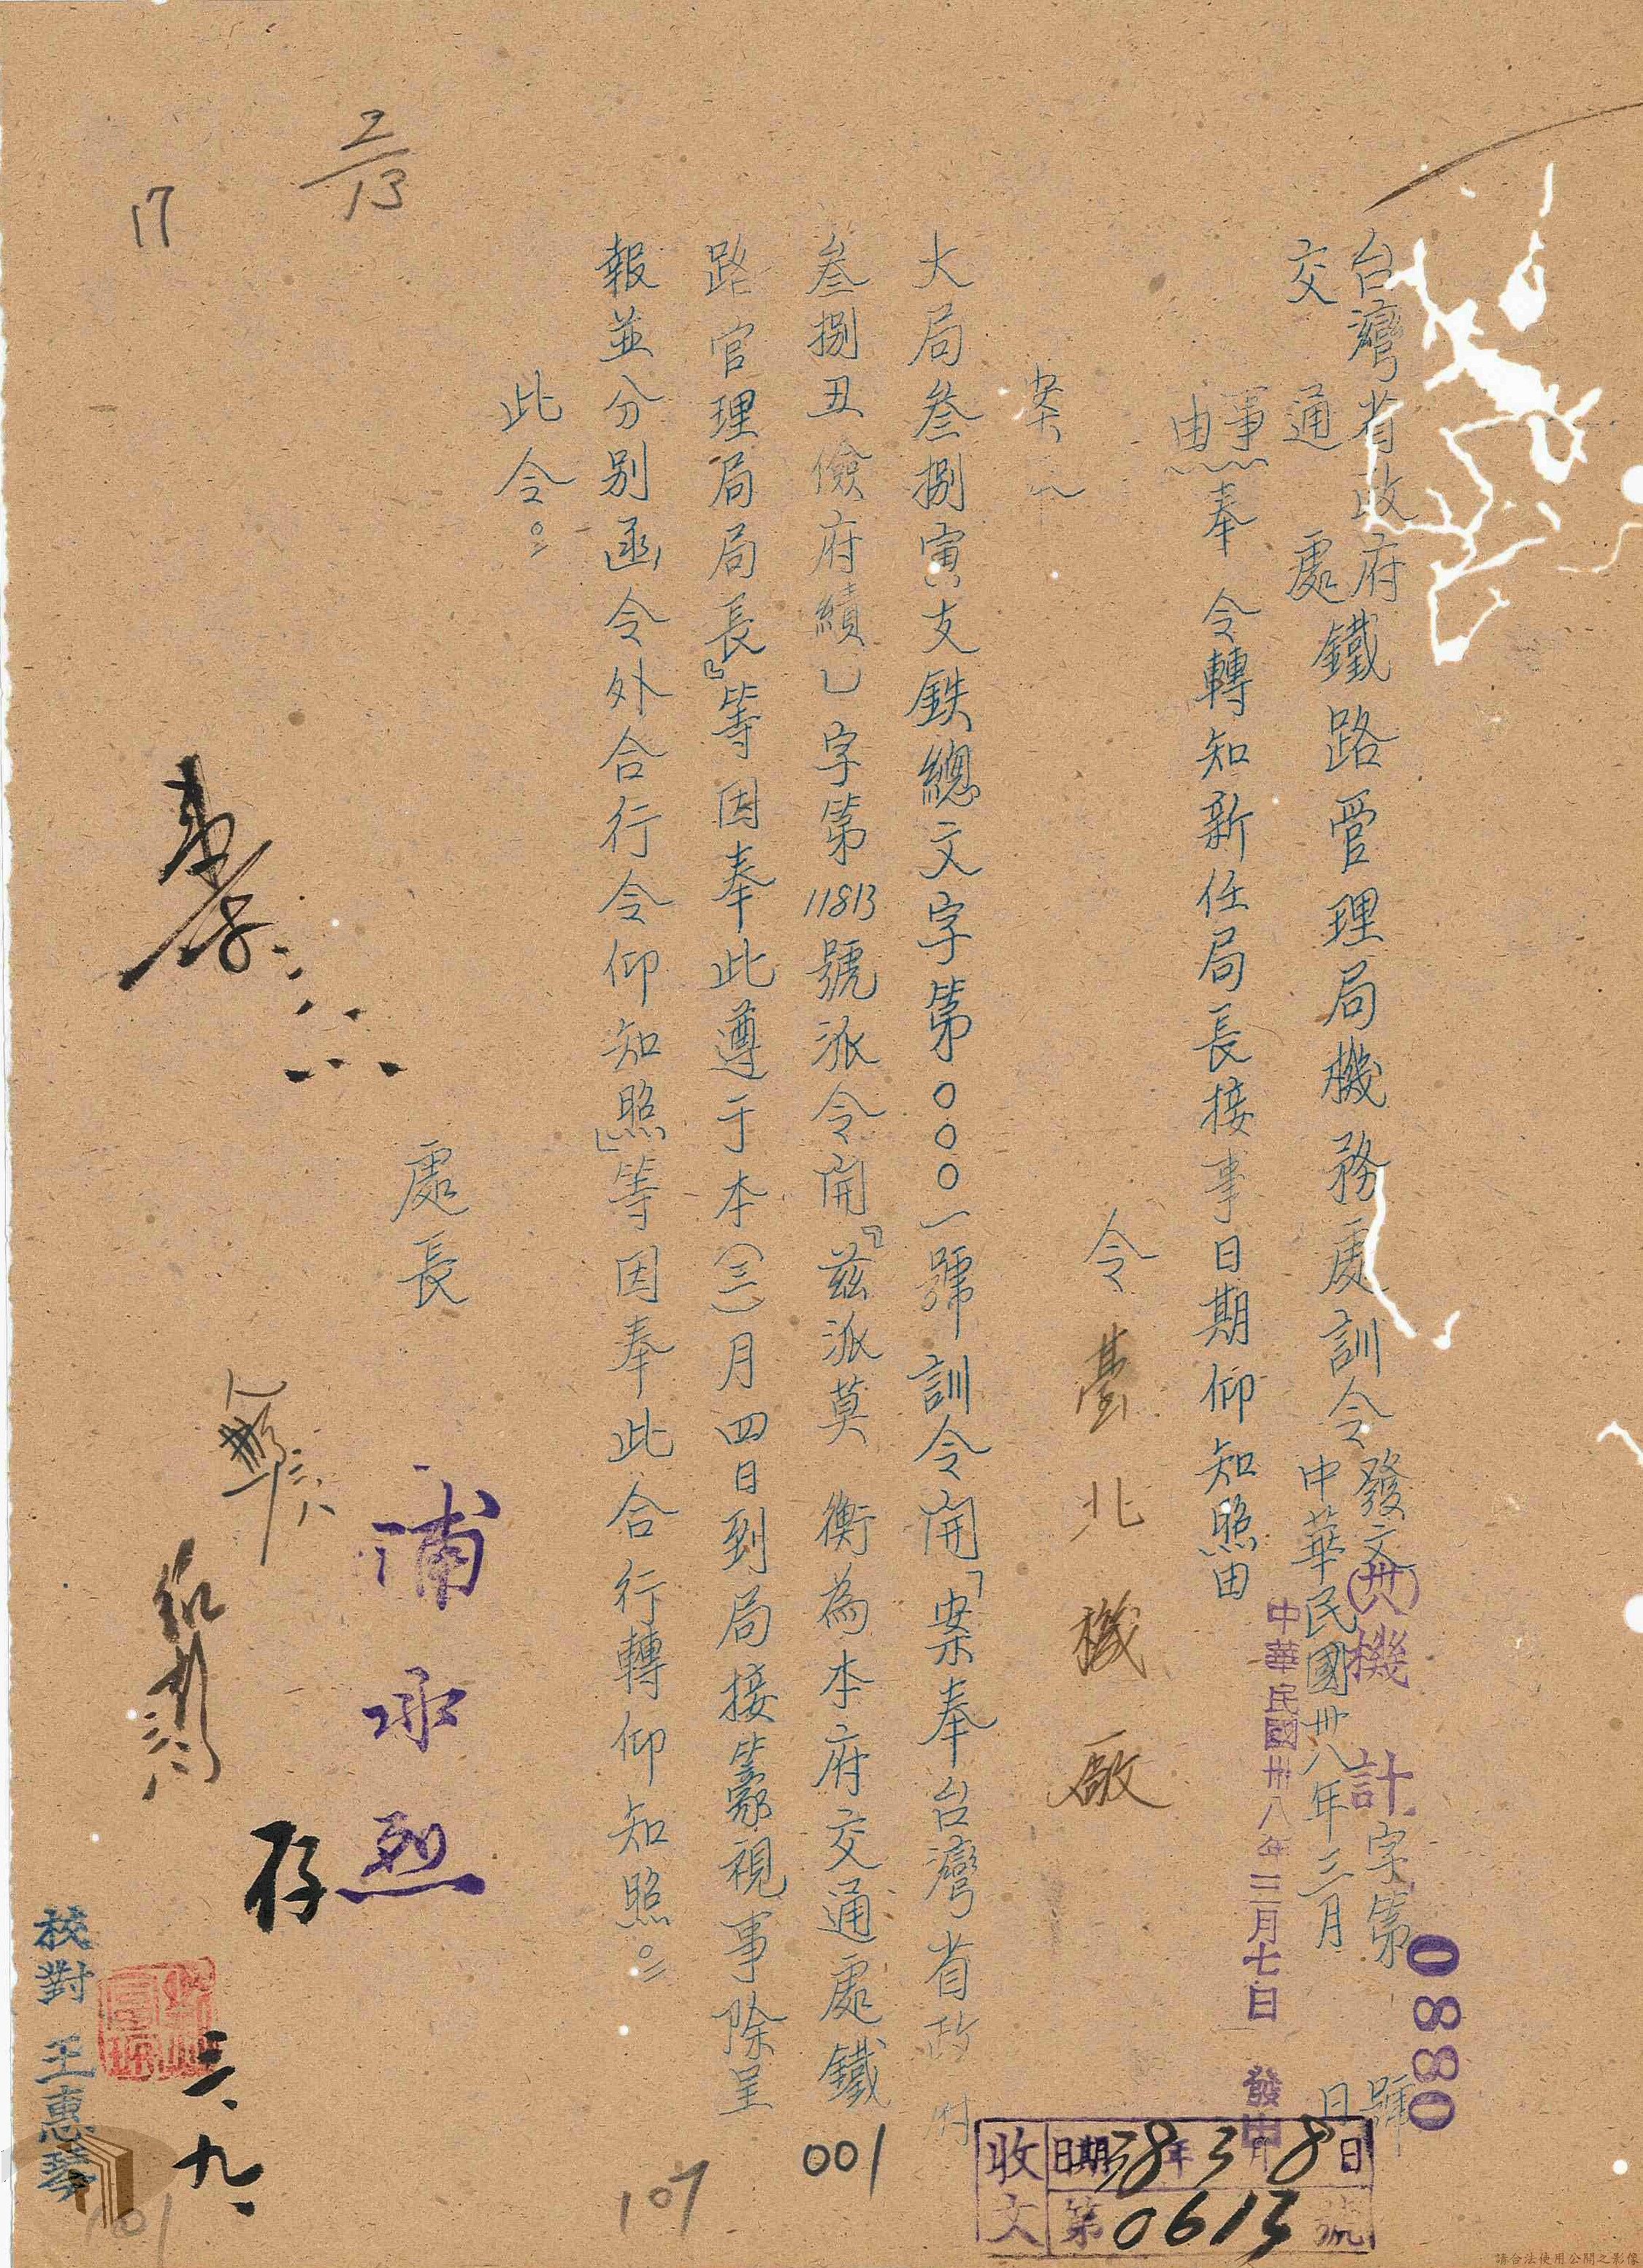 台灣省政府
交通處
鐵路管理局機務處訓令
發文(卅八)機計字第0880號
中華民國卅八年三月 日
中華民國卅八年三月七日 發出
事由:奉令轉知新任局長接事日期仰知照由
令臺北機廠
案奉
大局叁捌寅支鉄總文字第000一號訓令開「案奉台灣省政府
叁捌丑儉府績乙字第11813號派令開『茲派莫衡為本府交通處鐵
路管理局局長』等因奉此遵于本(三)月四日到局接篆視事除呈
報並分別函令外合行令仰知照」等因奉此合行轉仰知照。
此令。
處長
浦承烈
存
三、九、
校對 王惠琴
收文
日期38年3月8日
第0613號
2/13
17
001
107
101
請合法使用公開之影像